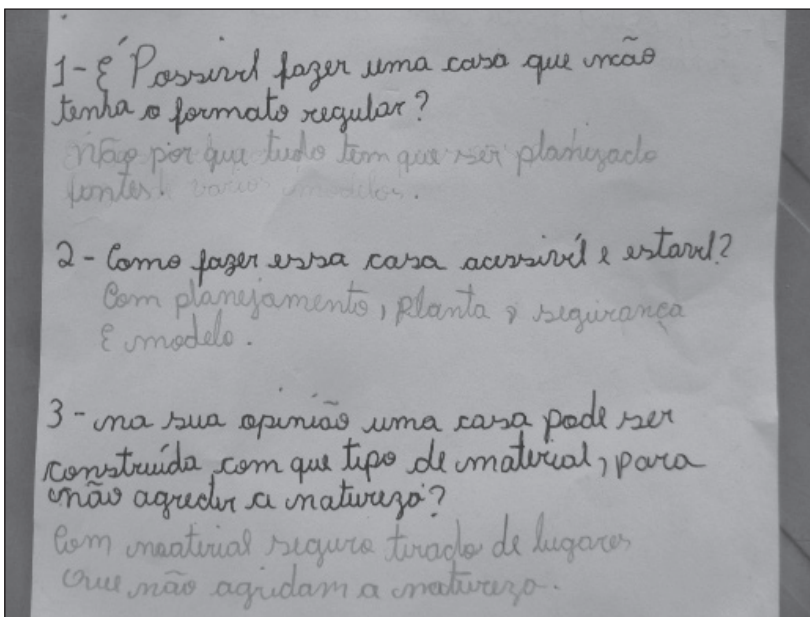 1-É Possivel fazer uma casa que não
tenha o formato regular?
não por que tudo tem que ser planizado
varios modelos.
2- Como fazer essa casa acessivíl e estavel?
Com planejamento, planta, segurança
E modelo.
3- na sua opinião uma casa pode ser
construída com que tipo de material, para
não agredir a natureza?
Com material seguro tirado de lugares
que não agridam a natureza.